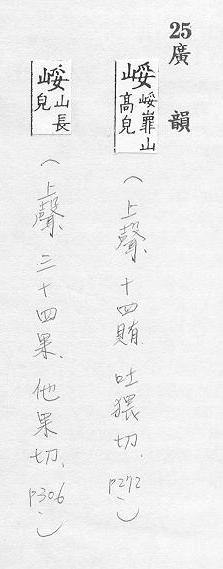 25 廣韻
㟎 㟎嶵山高皃 (上聲、十四賄 吐猥切. P272)
㟎 山長皃 (上聲 三十四果、他果切, P306.)